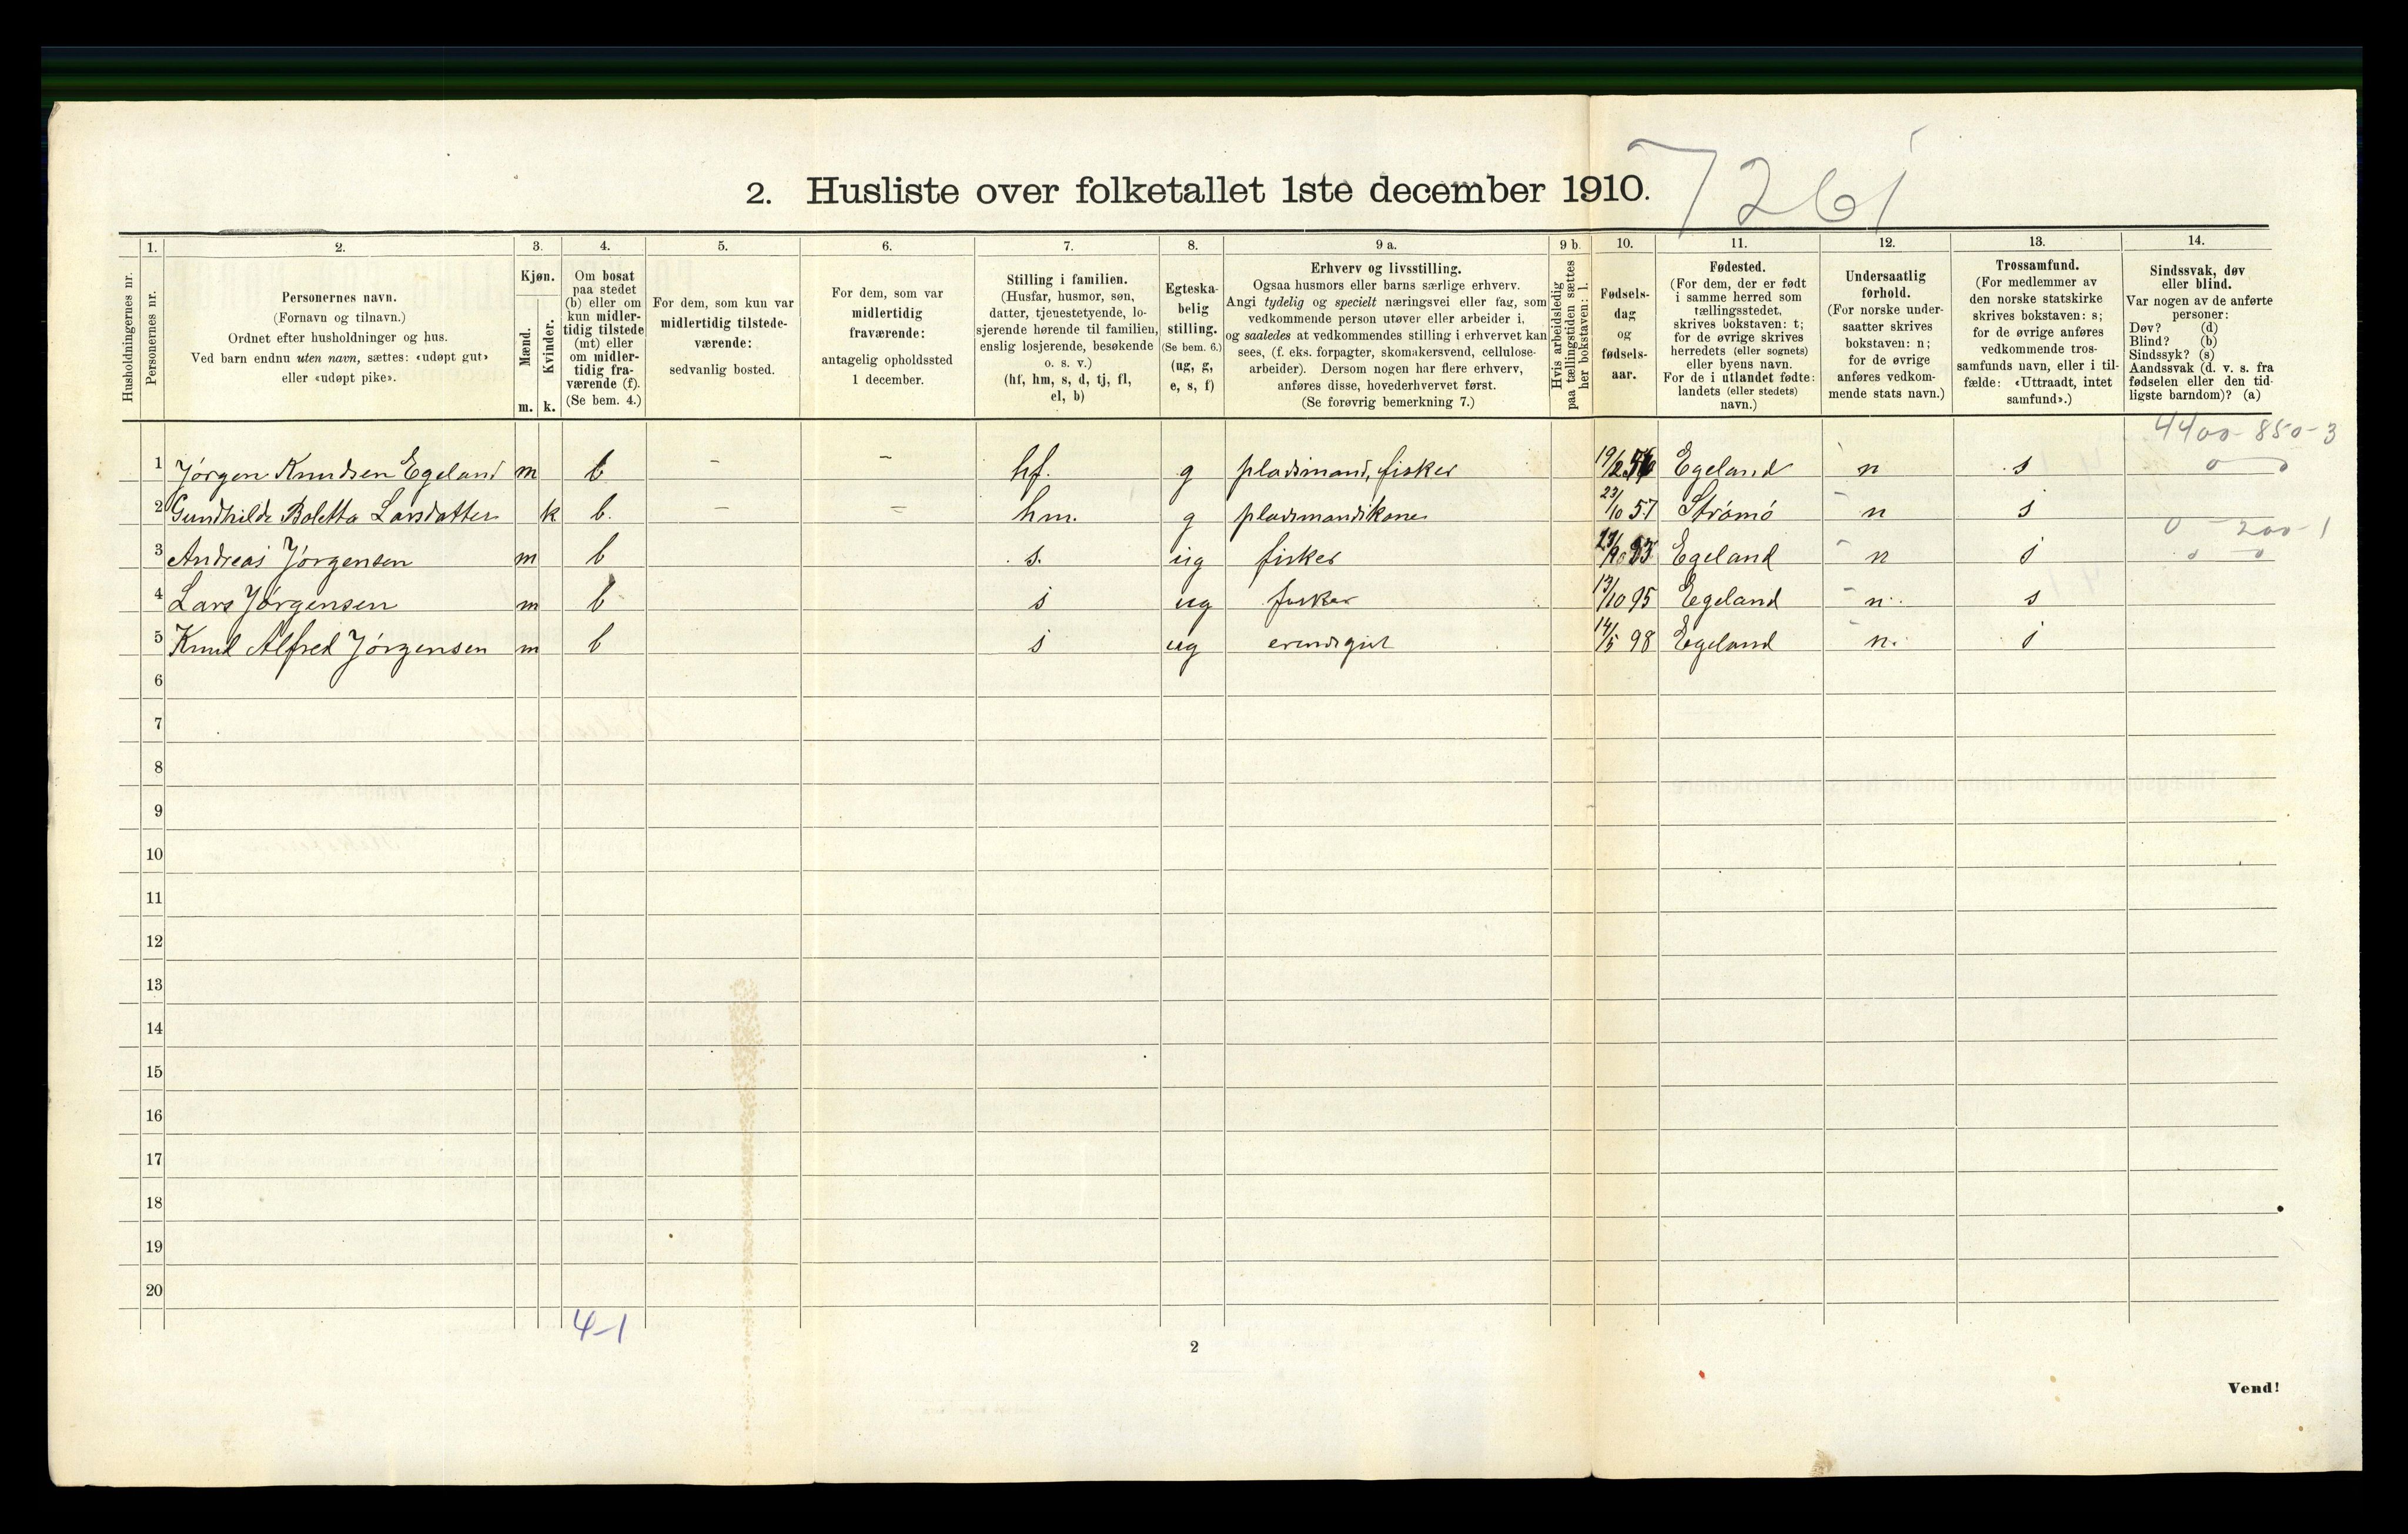 7261
2. Husliste over folketallet 1ste december 1910.
Husholdningernes nr.
1. Personernes nr.
2. Personernes navn.
(Fornavn og tilnavn.)
Ordnet efter husholdninger og hus.
Ved barn endnu uten navn, sættes: «udøpt gut»
eller «udøpt pike».
3. Kjøn.
Mænd. m.
Kvinder. k.
4. Om bosat
paa stedet
(b) eller om
kun midler-
tidig tilstede
(mt) eller
om midler-
tidig fra-
værende (f).
(Se bem. 4.)
5. For dem, som kun var
midlertidig tilstede-
værende:
sedvanlig bosted.
6. For dem, som var
midlertidig
fraværende:
antagelig opholdssted
1 december.
7. Stilling i familien.
(Husfar, husmor, søn,
datter, tjenestetyende, lo-
sjerende hørende til familien,
enslig losjerende, besøkende
o. s. v.)
(hf, hm, s, d, tj, fl,
el, b)
8. Egteska-
belig
stilling.
(Se bem. 6.)
(ug, g,
e, s, f)
9 a. Erhverv og livsstilling.
Ogsaa husmors eller barns særlige erhverv.
Angi tydelig og specielt næringsvei eller fag, som
vedkommende person utøver eller arbeider i,
og saaledes at vedkommendes stilling i erhvervet kan
sees, (f. eks. forpagter, skomakersvend, cellulose-
arbeider). Dersom nogen har flere erhverv,
anføres disse, hovederhvervet først.
(Se forøvrig bemerkning 7.)
9 b. Hvis arbeidsledig
paa tællingstiden sættes
her bokstaven: l.
10. Fødsels-
dag
og
fødsels-
aar.
11. Fødested.
(For dem, der er født
i samme herred som
tællingsstedet,
skrives bokstaven: t;
for de øvrige skrives
herredets (eller sognets)
eller byens navn.
For de i utlandet fødte:
landets (eller stedets)
navn.)
12. Undersaatlig
forhold.
(For norske under-
saatter skrives
bokstaven: n;
for de øvrige
anføres vedkom-
mende stats navn.)
13. Trossamfund.
(For medlemmer av
den norske statskirke
skrives bokstaven: s;
for de øvrige anføres
vedkommende tros-
samfunds navn, eller i til-
fælde: «Uttraadt, intet
samfund».)
14. Sindssvak, døv
eller blind.
Var nogen av de anførte
personer:
Døv? (d)
Blind? (b)
Sindssyk? (s)
Aandssvak (d. v. s. fra
fødselen eller den tid-
ligste barndom)? (a)
4400-850-3
1 Jörgen Knudsen Egeland m b - - hf. g pladsmand, fisker 19/2 56 Egeland n s 0 0
2 Gundhilde Boletta Larsdatter k b. - - hm. g pladsmandskone 23/10 57 Strömö n s
0 - 200-1
3 Andreas Jörgensen m b s. ug fisker Egeland n s 0 0
4 Lars Jörgensen m b s ug fisker 13/10 95 Egeland n. s
5 Knud Alfred Jörgensen m b s ug erendsgut 14/5 98 Egeland n. s
6
7
8
9
10
11
12
13
14
15
16
17
18
19
20
4-1
2
Vend!